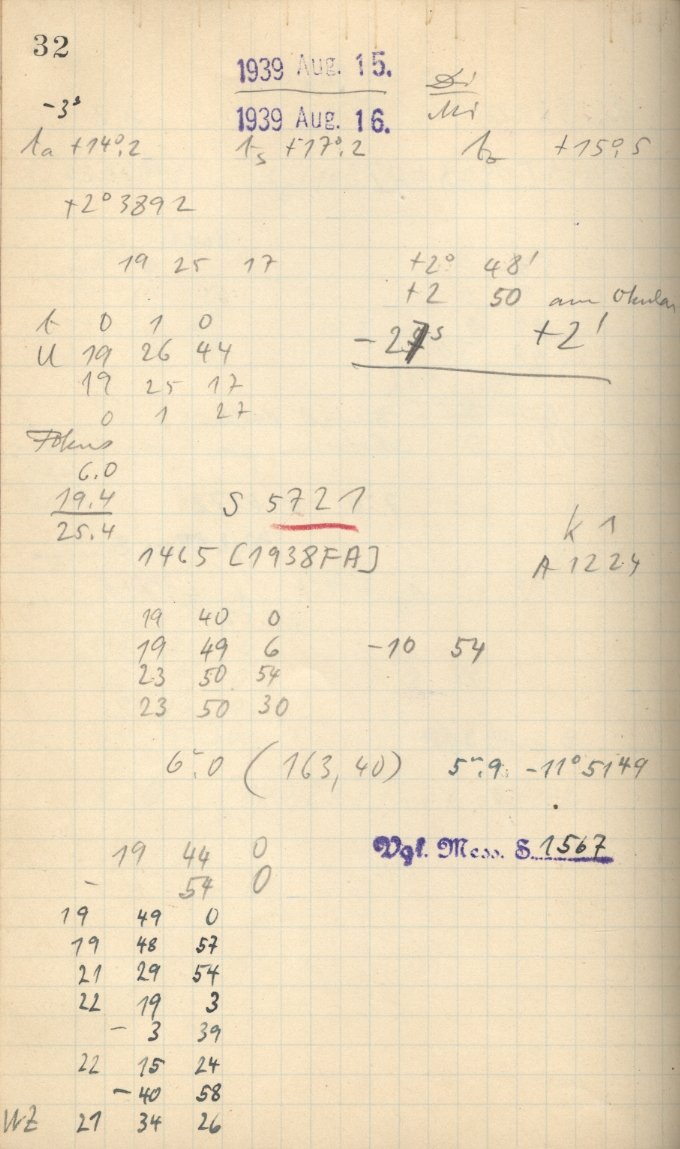 32
1939 Aug. 15. Di
1939 Aug. 16. Mi
-3ˢ
ta +14°,2 ts +17°,2 +15°,5
+2°3892
19 25 17 +2° 48'
+2 50 am Okular
t 0 1 0 -27ˢ +2'
U 19 26 44
19 25 17
0 1 27
Fokus
6.0
19.4
25.4
S 5721
K 1
1465 [1938FA] A 1224
19 40 0
19 49 6 -10 54
23 50 54
23 50 30
6ᵐ.0 (163,40) 5ᵐ.9 -11°5149
19 44 0 Vgl. Mess. S. 1567
- 54 0
19 49 0
19 48 57
21 29 54
22 19 3
- 3 39
22 15 24
-40 58
WZ 21 34 26